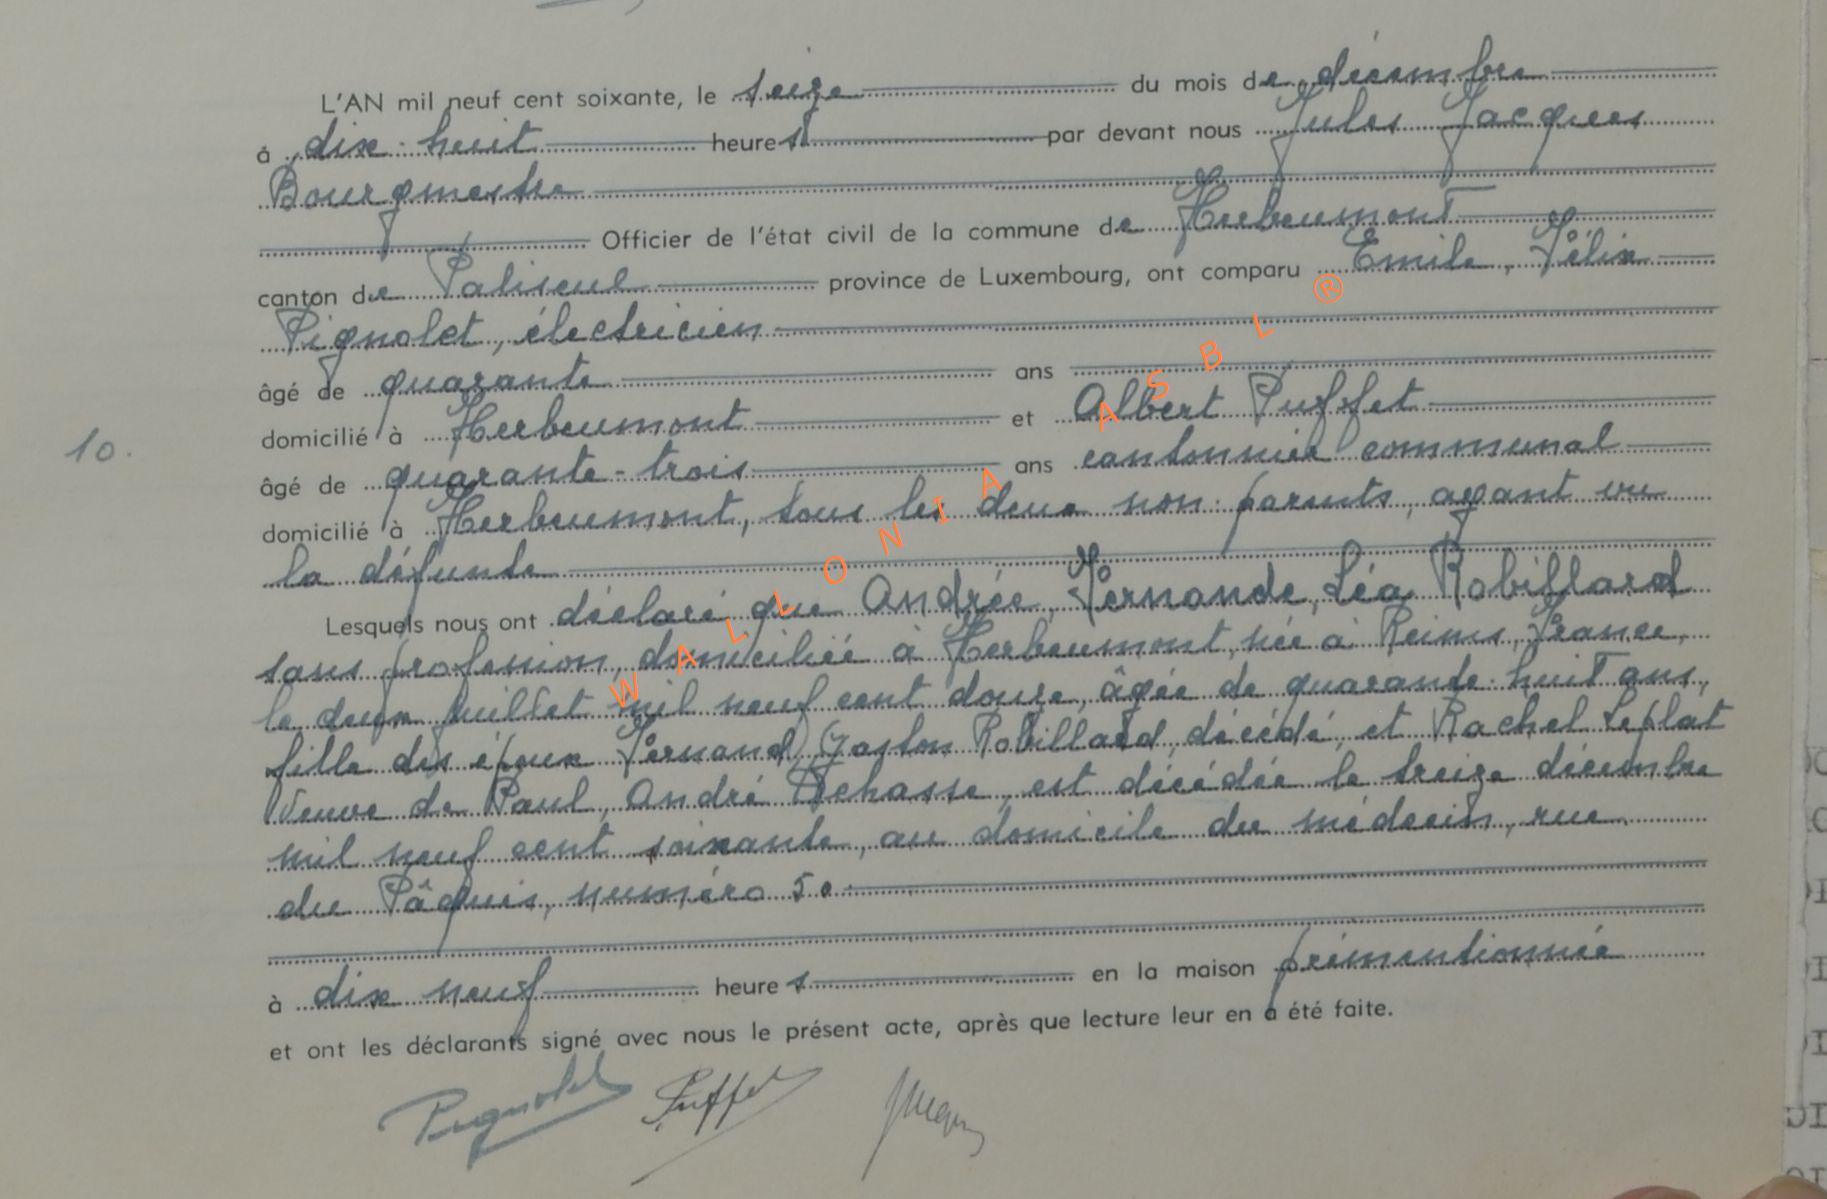 L'AN mil neuf cent soixante, le seize du mois de décembre
à dix-huit heures par devant nous Jules Jacques
Bourgmestre
Officier de l'état civil de la commune de Herbeumont
canton de Paliseul province de Luxembourg, ont comparu Emile, Félix
Pignolet, électricien
âgé de quarante ans
domicilié à Herbeumont et Albert Puffet
10.
âgé de quarante-trois ans cantonnier communal
domicilié à Herbeumont, tous les deux non parents, ayant vu
la défunte
Lesquels nous ont déclaré que Andrée, Fernande, Léa Robillard
sans profession, domiciliée à Herbeumont, née à Reims, France,
le deux juillet mil neuf cent douze, âgée de quarante-huit ans,
fille des époux Fernand Gaston Robillard, décédé, et Rachel Leplat
Veuve de Paul, André Dehasse, est décédée le treize décembre
mil neuf cent soixante, au domicile du médecin, rue
du Pâquis, numéro 50
à dix neuf heures en la maison prémentionnée
et ont les déclarants signé avec nous le présent acte, après que lecture leur en a été faite.
Pignolet Puffet Jacques
WALLONIA ASBL ®